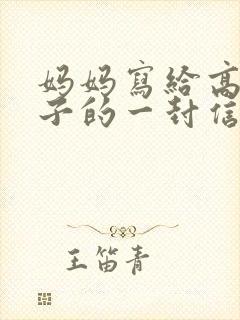 妈妈寫給高
子的一封信
王笛青